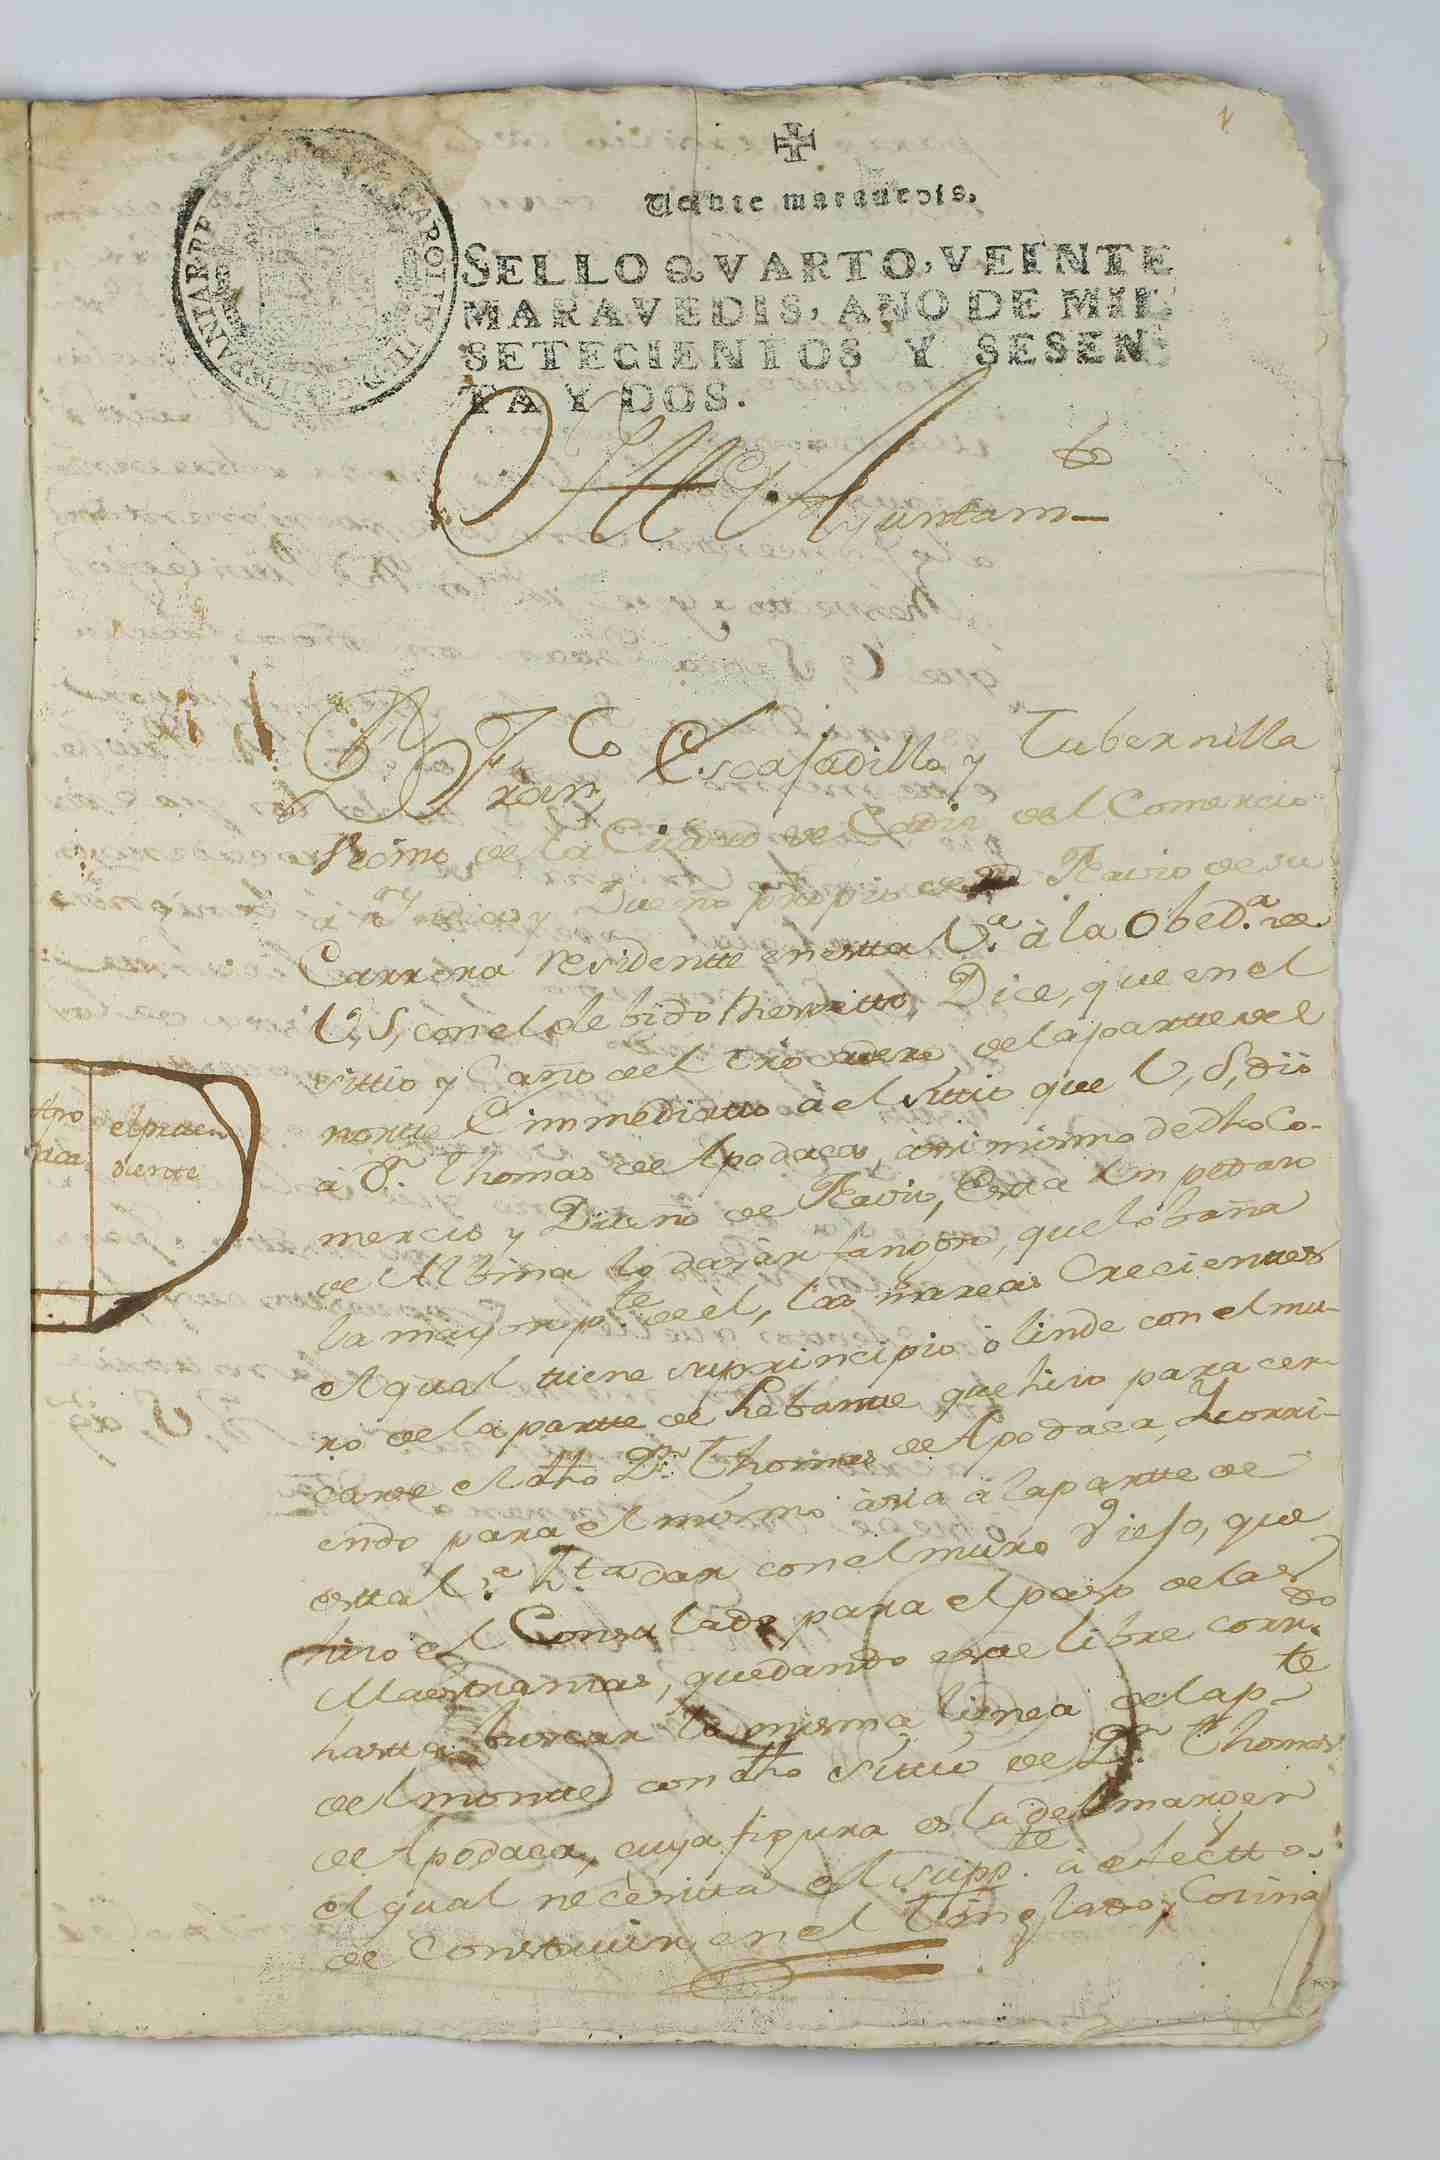 1
Veinte maravedis.
SELLO QVARTO, VEINTE
MARAVEDIS, AÑO DE MIL
SETECIENTOS Y SESEN
TA Y DOS.
Ill.e Ayuntam.to
D.n Fran.co Escajadillo y Tubernilla
vezino de la Ciudad de Cadiz del Comercio
a Yndias y Dueño propio de Navio de su
Carrera residentte en estta V.a à la Obed.a de
V, S, con el debido Respectto, Dice, que en el
sittio y Caño del Trocadero de la partte del
nortte Immediatto à el sittio que V, S, dió
a D.n Thomas de Apodaca, assi mismo de dho Co-
mercio y Dueño de Navio, Estta un pedazo
de Albina lodasàr fangoso, que lo baña
la mayor p.te de èl, las mareas Crecienttes
el qual tiene su principio ò linde con el mu-
ro de la partte de Lebantte que hizo para cer-
carse el dho D.n Thomas de Apodaca, y corri-
endo para el mismo àsia à la partte de
estta V.a h.ta dar con el muro viejo, que
hizo el Consulado para el paso de las
Maestranzas, quedando estte libre corr.do
hastta buscar la misma linea de la p.te
del montte con dho sittio de D.n Thomas
de Apodaca, cuya figura es la del margen
el qual necesitta el supp.te à efectto
de Construir en el Tinglado, Cosina
Apo
daca
el prettten
diente